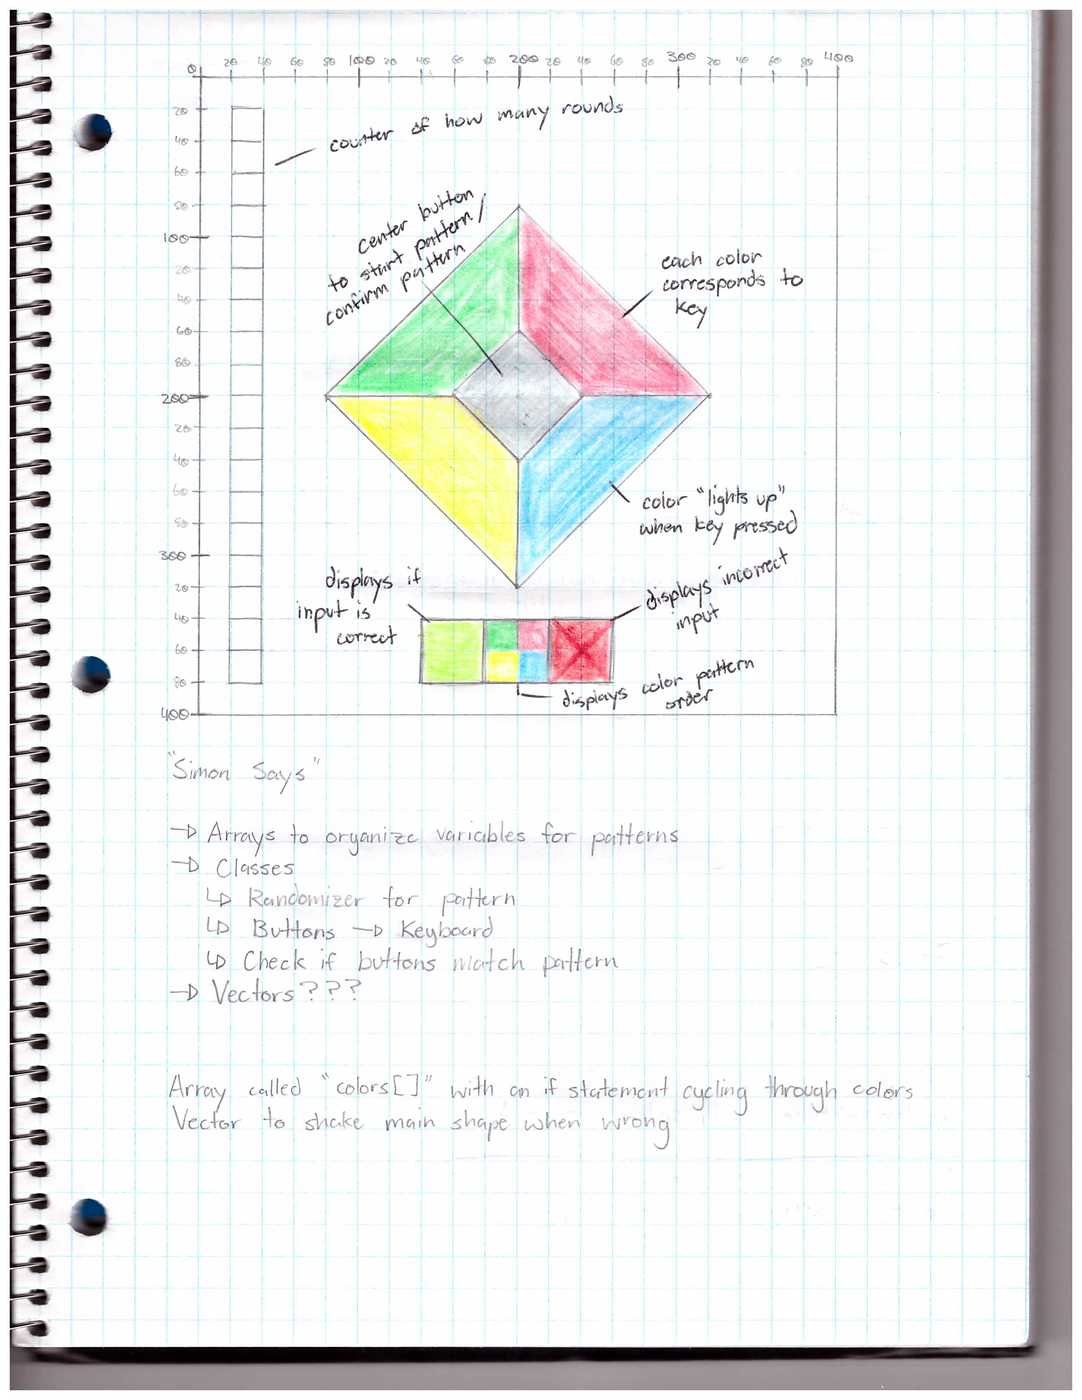 0 20 40 60 80 100 20 40 60 80 200 20 40 60 80 300 20 40 60 80 400
20
40
60
80
100
20
40
60
80
200
20
40
60
80
300
20
40
60
80
400
counter of how many rounds
center button
to start pattern/
confirm pattern
each color
corresponds to
key
color "lights up"
when key pressed
displays if
input is
correct
displays incorrect
input
displays color pattern
order
"Simon Says"
→ Arrays to organize variables for patterns
→ Classes
↳ Randomizer for pattern
↳ Buttons → Keyboard
↳ Check if buttons match pattern
→ Vectors???
Array called "colors[]" with an if statement cycling through colors
Vector to shake main shape when wrong